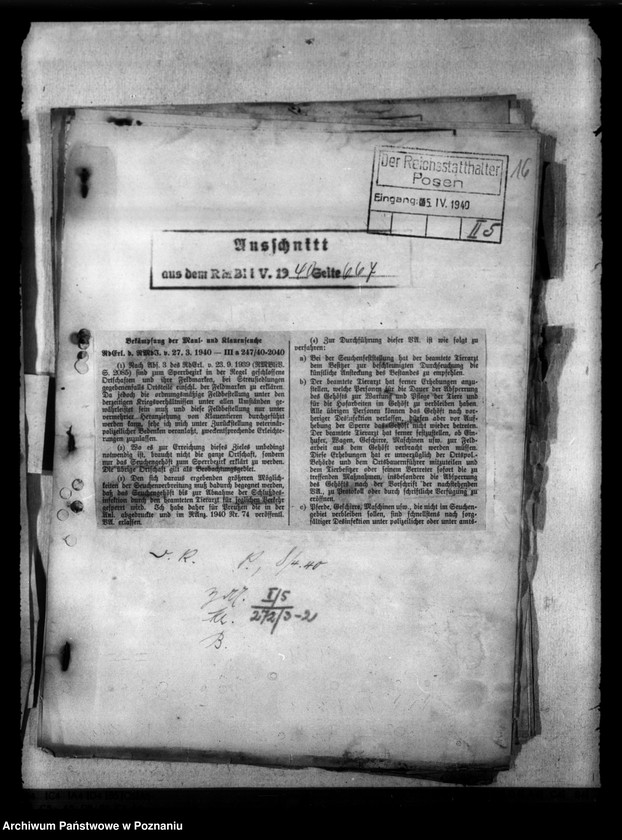 16
Der Reichsstatthalter
Posen
Eingang: 05. IV. 1940
II 5
Ausschnitt
aus dem RMBliV. 1940 Seite 667
Bekämpfung der Maul- und Klauenseuche
RdErl. d. RMdJ. v. 27. 3. 1940 — III s 247/40-2040
(1) Nach Abs. 3 des RdErl. v. 23. 9. 1939 (RMBliV.
S. 2065) sind zum Sperrbezirk in der Regel geschlossene
Ortschaften und ihre Feldmarken, bei Streusiedlungen
gegebenenfalls Ortsteile einschl. der Feldmarken zu erklären.
Da jedoch die ordnungsmäßige Feldbestellung unter den
derzeitigen Kriegsverhältnissen unter allen Umständen ge-
währleistet sein muß und diese Feldbestellung nur unter
vermehrter Heranziehung von Klauentieren durchgeführt
werden kann, sehe ich mich unter Zurückstellung veterinär-
polizeilicher Bedenken veranlaßt, zweckentsprechende Erleichte-
rungen zuzulassen.
(2) Wo es zur Erreichung dieses Zieles unbedingt
notwendig ist, braucht nicht die ganze Ortschaft, sondern
nur das Seuchengehöft zum Sperrbezirk erklärt zu werden.
Die übrige Ortschaft gilt als Beobachtungsgebiet.
(3) Den sich daraus ergebenden größeren Möglich-
keiten der Seuchenverbreitung muß dadurch begegnet werden,
daß das Seuchengehöft bis zur Abnahme der Schlußdes-
infektion durch den beamteten Tierarzt für jeglichen Verkehr
gesperrt wird. Ich habe daher für Preußen die in der
Anl. abgedruckte und im RAnz. 1940 Nr. 74 veröffentl.
VA. erlassen.
(4) Zur Durchführung dieser VA. ist wie folgt zu
verfahren:
a) Bei der Seuchenfeststellung hat der beamtete Tierarzt
dem Besitzer zur beschleunigten Durchseuchung die
künstliche Ansteckung des Bestandes zu empfehlen.
b) Der beamtete Tierarzt hat ferner Erhebungen anzu-
stellen, welche Personen für die Dauer der Absperrung
des Gehöfts zur Wartung und Pflege der Tiere und
für die Hofarbeiten im Gehöft zu verbleiben haben.
Alle übrigen Personen können das Gehöft nach vorhe-
riger Desinfektion verlassen, dürfen aber vor Auf-
hebung der Sperre das Gehöft nicht wieder betreten.
Der beamtete Tierarzt hat ferner festzustellen, ob Ein-
hufer, Wagen, Geschirre, Maschinen usw. zur Feld-
arbeit aus dem Gehöft verbracht werden müssen.
Diese Erhebungen hat er unverzüglich der Ortspol.-
Behörde und dem Ortsbauernführer mitzuteilen und
dem Tierbesitzer oder seinem Vertreter sofort die zu
treffenden Maßnahmen, insbesondere die Absperrung
des Gehöfts nach der Vorschrift der nachstehenden
VA., zu Protokoll oder durch schriftliche Verfügung zu
eröffnen.
c) Pferde, Geschirre, Maschinen usw., die nicht im Seuchen-
gehöft verbleiben sollen, sind schnellstens nach sorg-
fältiger Desinfektion unter polizeilicher oder unter amts-
v. R. R, 8/4.40
I/5
272/3-2
B.
Archiwum Państwowe w Poznaniu